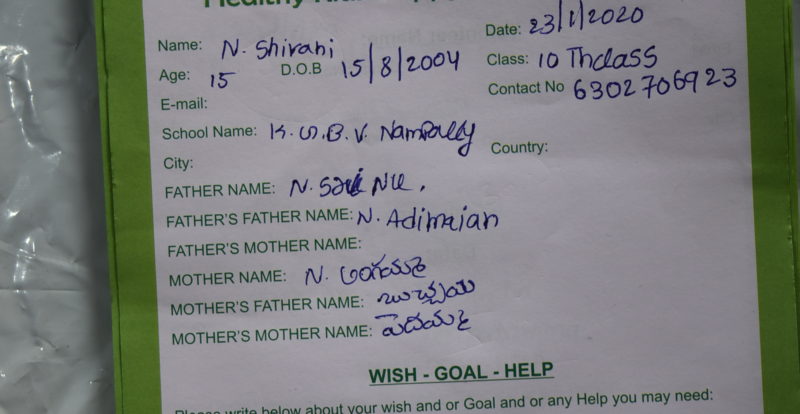 Date: 23/1/2020
Name: N. Shivani
Age: 15 D.O.B 15/8/2004 Class: 10 Thclass
E-mail: Contact No 6302706923
School Name: K.G.B.V. Nampally
City: Country:
FATHER NAME: N.
FATHER'S FATHER NAME: N. Adimaiah
FATHER'S MOTHER NAME:
MOTHER NAME: N. అంగమ్మ
MOTHER'S FATHER NAME: బుచ్చయ
MOTHER'S MOTHER NAME: పెదమ్మ
WISH - GOAL - HELP
Please write below about your wish and or Goal and or any Help you may need: